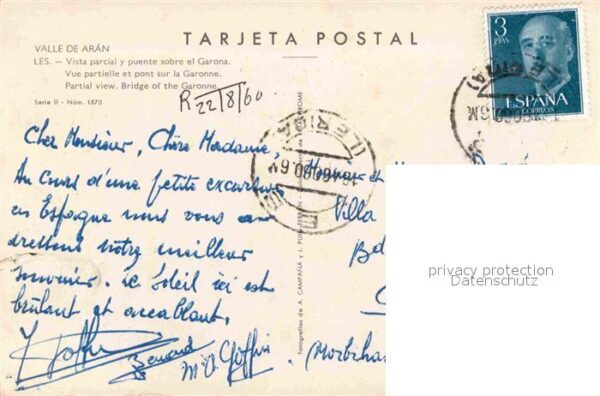 TARJETA POSTAL
VALLE DE ARÁN
LES. — Vista parcial y puente sobre el Garona.
Vue partielle et pont sur la Garonne.
Partial view. Bridge of the Garonne.
Serie II - Núm. 1570
R 22/8/60
3
PTAS
ESPAÑA
CORREOS
Cher Monsieur, Chère Madame,
Au cours d'une petite excursion
en Espagne nous vous a
dressons notre meilleur
souvenir. Le Soleil ici est
brûlant et accablant.
M. Goffin
Fotografías de A. CAMPAÑÁ y J. PUIG FERRÁN
Monsieur et
Villa
Morbihan
(LERIDA)
privacy protection
Datenschutz